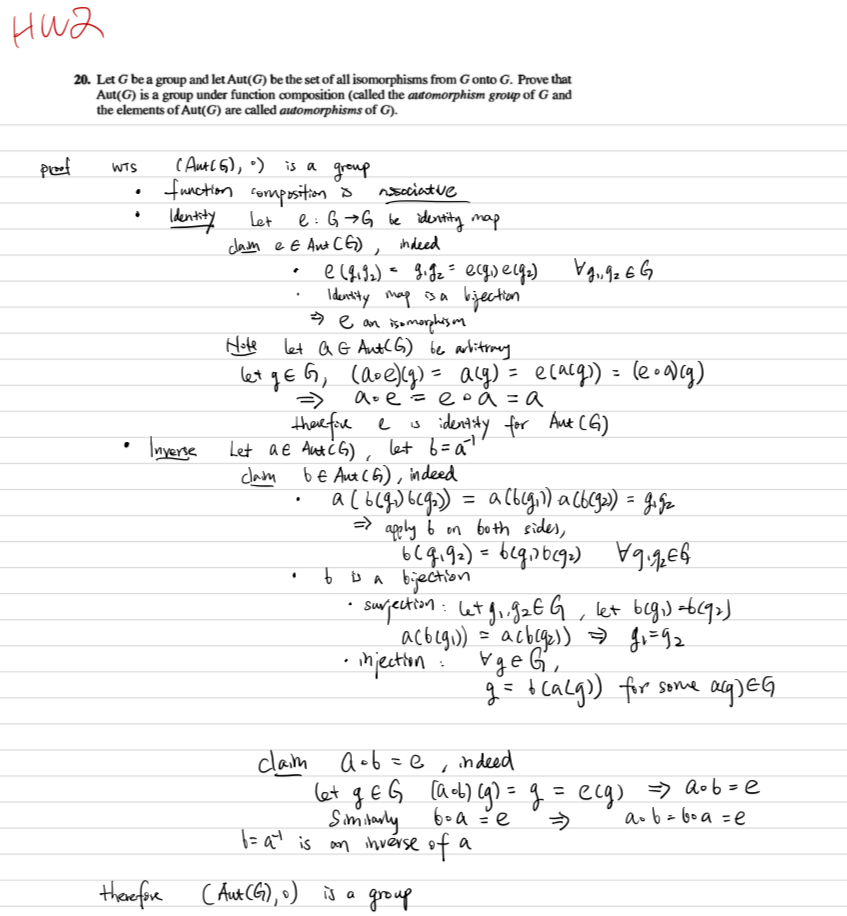 HW2
20. Let G be a group and let Aut(G) be the set of all isomorphisms from G onto G. Prove that
Aut(G) is a group under function composition (called the automorphism group of G and
the elements of Aut(G) are called automorphisms of G).
proof WTS (Aut(G), ∘) is a group
• function composition is associative
• Identity Let e : G → G be identity map
claim e ∈ Aut(G), indeed
• e(g₁g₂) = g₁g₂ = e(g₁)e(g₂) ∀g₁,g₂ ∈ G
• Identity map is a bijection
⇒ e an isomorphism
Note let a ∈ Aut(G) be arbitrary
let g ∈ G, (a∘e)(g) = a(g) = e(a(g)) = (e∘a)(g)
⇒ a∘e = e∘a = a
therefore e is identity for Aut(G)
• Inverse Let a ∈ Aut(G), let b = a⁻¹
claim b ∈ Aut(G), indeed
• a(b(g₁)b(g₂)) = a(b(g₁)) a(b(g₂)) = g₁g₂
⇒ apply b on both sides,
b(g₁g₂) = b(g₁)b(g₂) ∀g₁g₂∈G
• b is a bijection
• surjection : let g₁,g₂∈G, let b(g₁)=b(g₂)
a(b(g₁)) = a(b(g₂)) ⇒ g₁=g₂
• injection : ∀g∈G,
g = b(a(g)) for some a(g)∈G
claim a∘b = e, indeed
let g∈G (a∘b)(g) = g = e(g) ⇒ a∘b = e
Similarly b∘a = e ⇒ a∘b = b∘a = e
b = a⁻¹ is an inverse of a
therefore (Aut(G), ∘) is a group